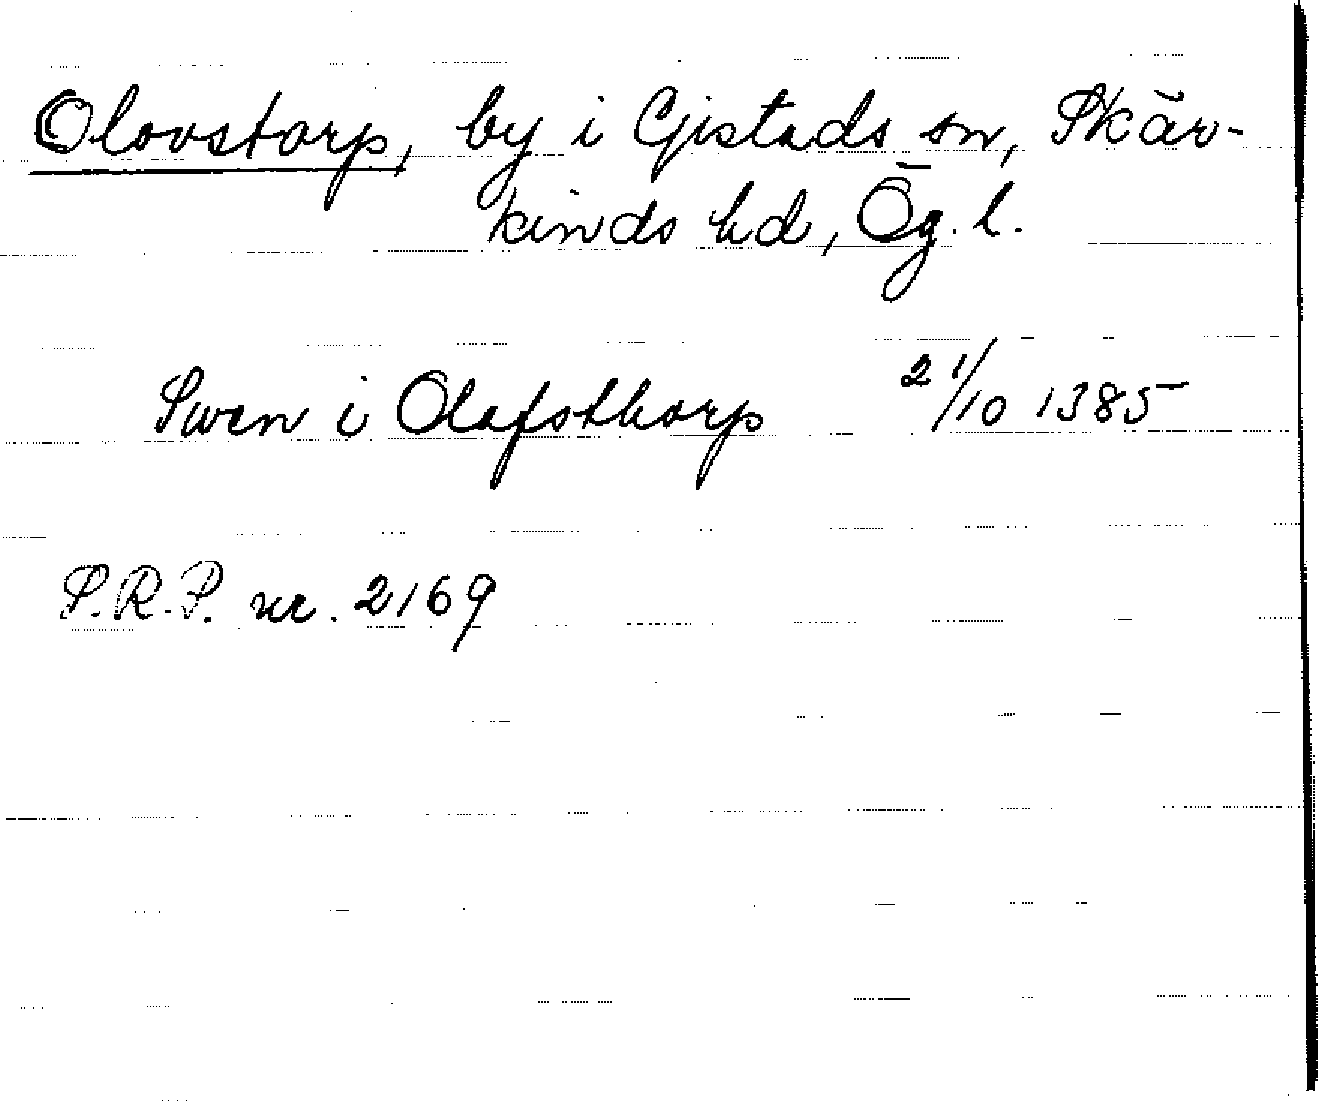 Olovstorp, by i Gistads sn, Skär-
kinds hd, Ög. l.
Swen i Olafsthorp 21/10 1385
S.R.P. nr. 2169